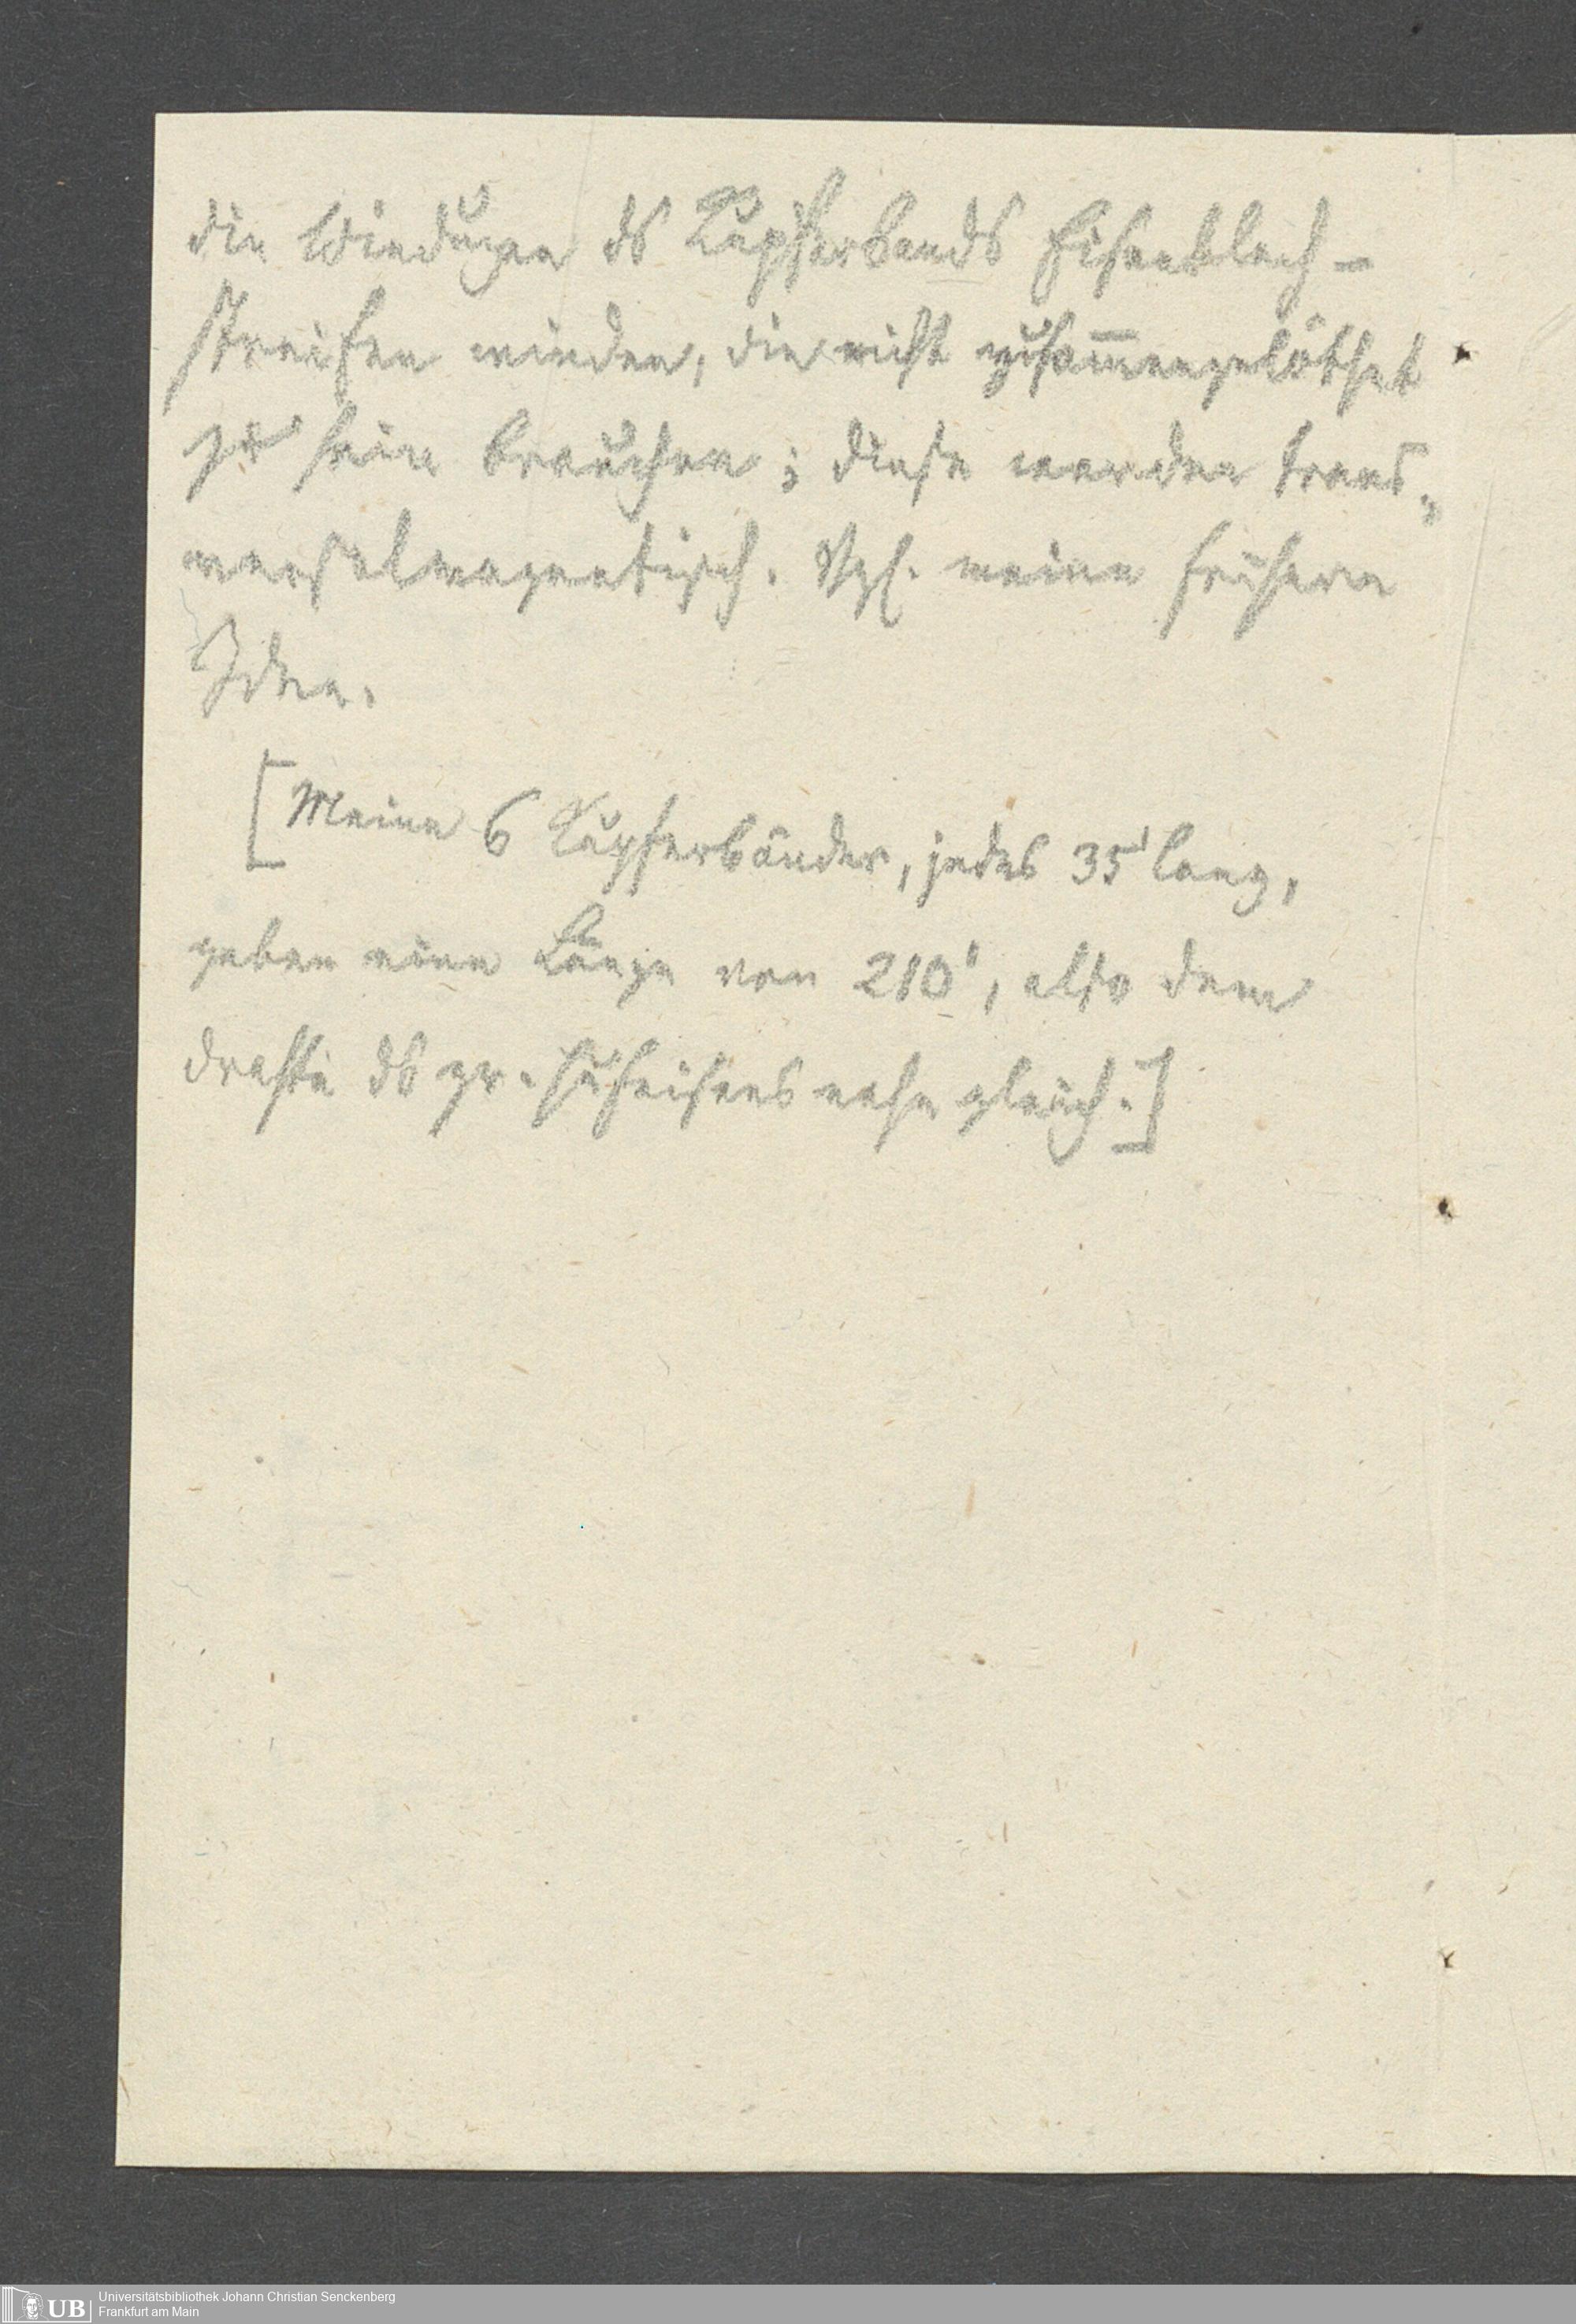 die Windungen ds Kupferbands Eisenblech-
streifen winden, die nicht zusam̅engelöthet
zu sein brauchen; diese werden trans„
versalmagnetisch. Vgl. meine frühern
Ideen.
[Meine 6 Kupferbänder, jedes 35' lang,
geben eine Länge von 210', also dem
drahte ds gr. Hufeisens nahe gleich.]
UB
Universitätsbibliothek Johann Christian Senckenberg
Frankfurt am Main